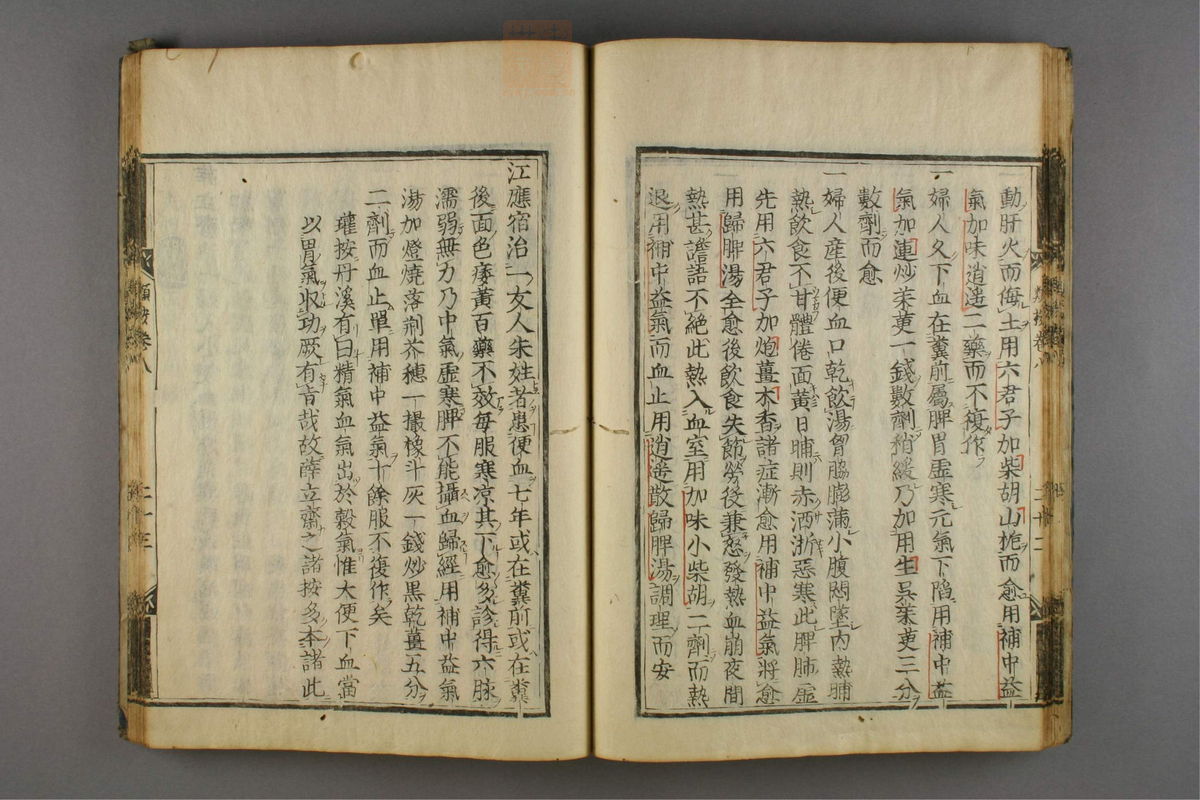 動肝火而侮土用六君子加柴胡山梔而愈用補中益
氣加味逍遥二藥而不復作
一婦人久下血在糞前屬脾胃虛寒元氣下陷用補中益
氣加連炒茱萸一錢數劑稍緩乃加用生吳茱萸三分
數劑而愈
一婦人産後便血口乾飲湯胷脇膨滿小腹悶墜内熱晡
熱飲食不甘體倦面黄日晡則赤洒淅惡寒此脾肺虛
先用六君子加炮薑木香諸症漸愈用補中益氣將愈
用歸脾湯全愈後飲食失節勞役兼怒發熱血崩夜間
熱甚譫語不絕此熱入血室用加味小柴胡二劑而熱
退用補中益氣而血止用逍遥散歸脾湯調理而安
江應宿治一女人朱姓者患便血七年或在糞前或在糞
後面色痿黄百藥不效每服寒凉其下愈多診得六脉
濡弱無力乃中氣虛寒脾不能攝血歸經用補中益氣
湯加燈燒落荆芥穗一撮橡斗灰一錢炒黒乾薑五分
二劑而血止單用補中益氣十餘服不復作矣
瓘按丹溪有曰精氣血氣出於榖氣惟大便下血當
以胃氣収功厥有旨哉故薛立齋之諸按多本諸此
類按卷八
二十三